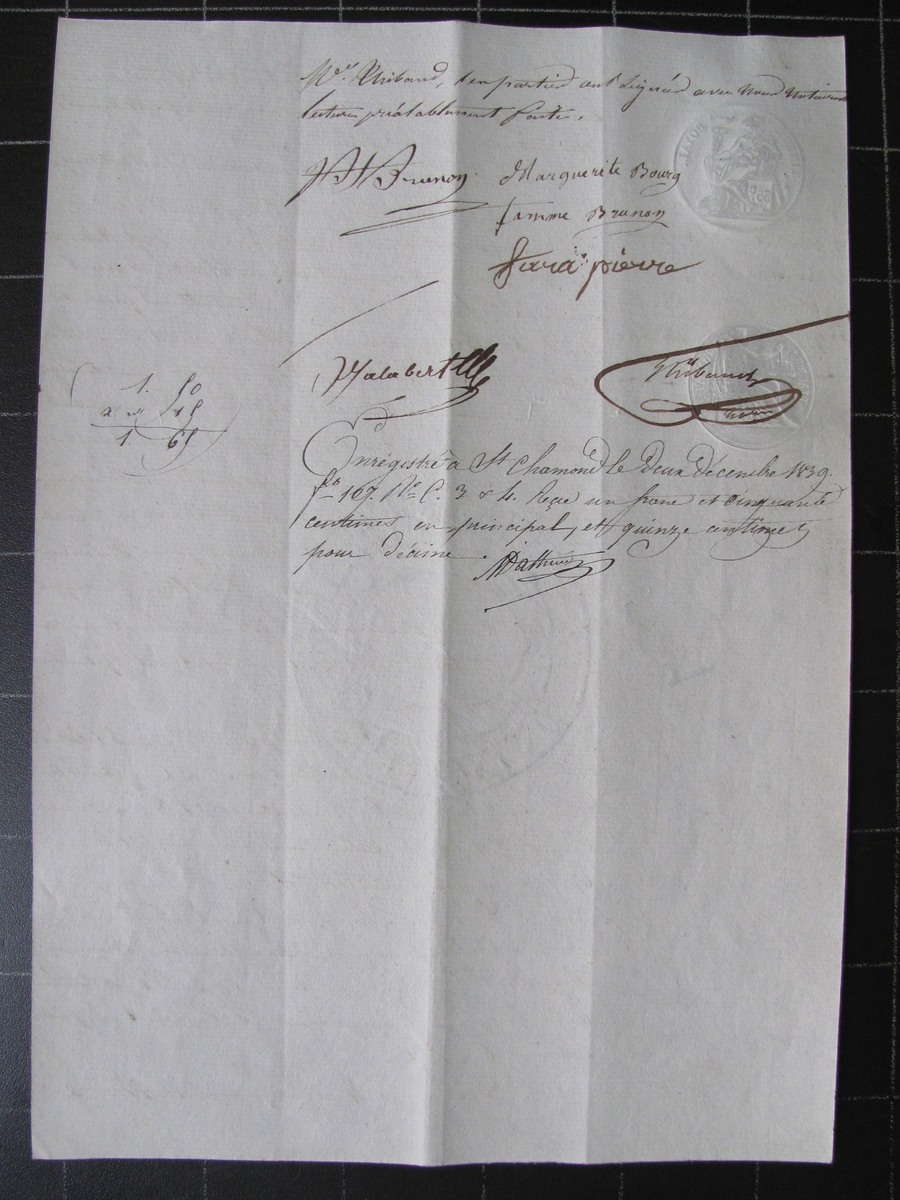 Mre. Thibaud, les parties ont signées avec nous notaires
lecture préalablement faite.
Brunon
Marguerite Bourg
famme Brunon
fara pierre
Malabert
Thibaud
nore
1. 50
15
1. 65
Enregistré à St Chamond le deux décembre 1839.
fo 167. Vo C. 3 & 4. Reçu un franc et cinquante
centimes en principal, et quinze centimes
pour décime.
Mathieu